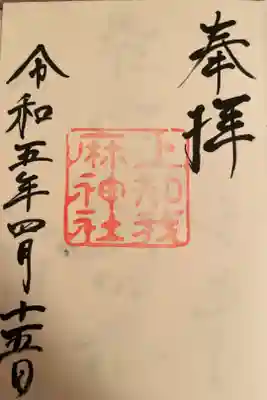 奉拝
上知我
麻神社
令和五年四月十五日